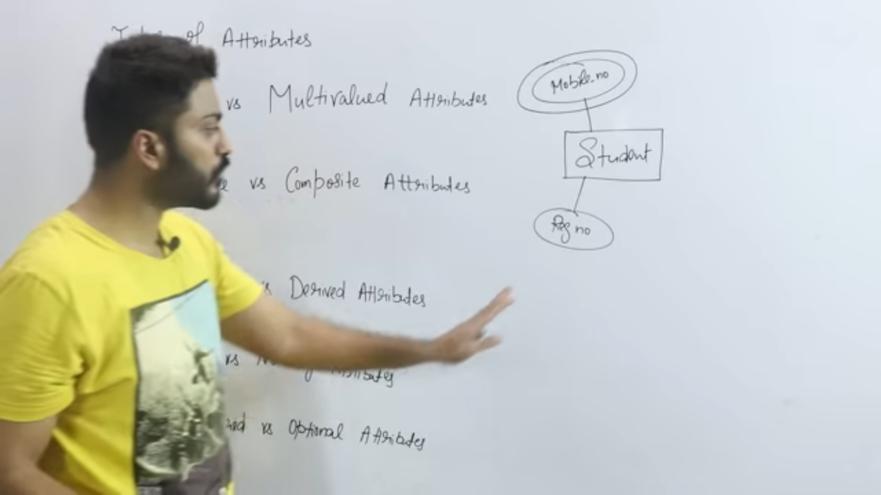 of Attributes
vs Multivalued Attributes
vs Composite Attributes
Derived Attributes
vs
vs Optional Attributes
Mobile.no
Student
Reg no